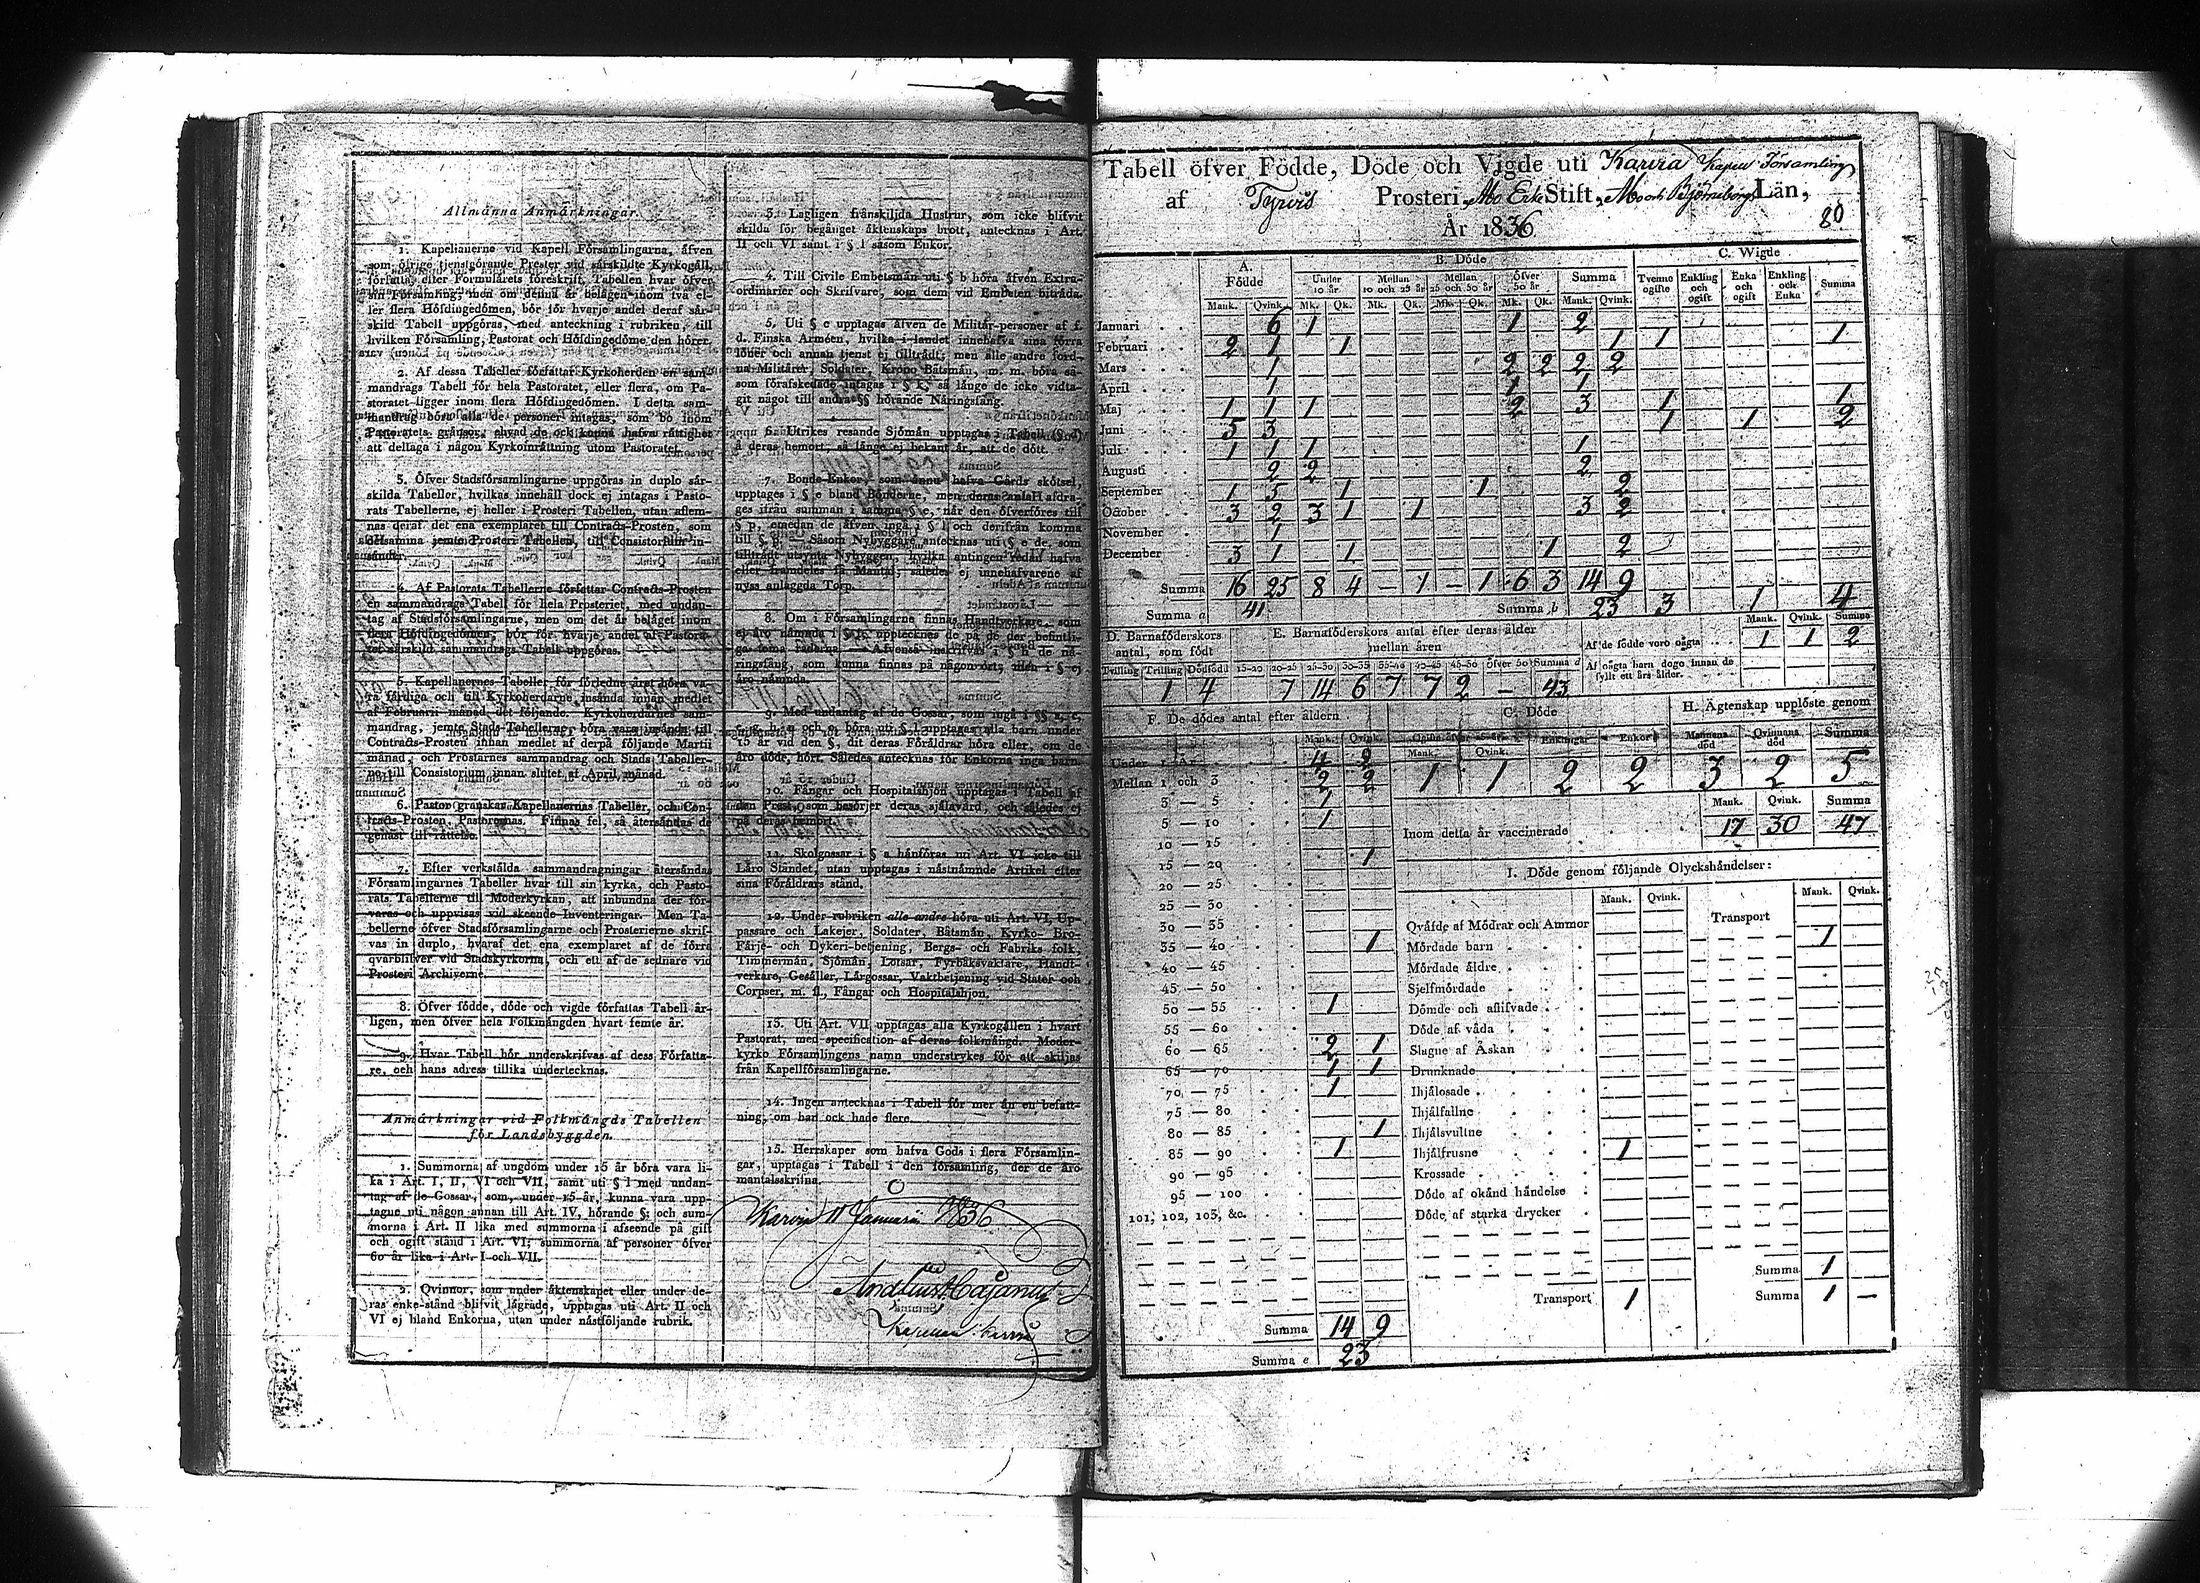 Allmänna Anmärkningar.
1. Kapellanerne vid Kapell Församlingarna, äfven
som öfrige tjenstgörande Prester vid särskildte Kyrkogäll,
författa, efter Formulärets föreskrift, Tabellen hvar öfver
sin Församling; men om denna är belägen inom två el-
ler flera Höfdingedömen, bör för hvarje andel deraf sär-
skild Tabell uppgöras, med anteckning i rubriken, till
hvilken Församling, Pastorat och Höfdingedöme den hörer.
2. Af dessa Tabeller författar Kyrkoherden en sam-
mandrags Tabell för hela Pastoratet, eller flera, om Pa-
storatet ligger inom flera Höfdingedömen. I detta sam-
mandrag böra alla de personer intagas, som bo inom
Pastoratets gränsor, ehvad de ock kunna hafva rättighet
att deltaga i någon Kyrkoinrättning utom Pastoratet.
3. Öfver Stadsförsamlingarne uppgöras in duplo sär-
skilda Tabeller, hvilkas innehåll dock ej intagas i Pasto-
rats Tabellerne, ej heller i Prosteri Tabellen, utan aflem-
nas deraf det ena exemplaret till Contracts-Prosten, som
detsamma jemte Prosteri Tabellen, till Consistorium in-
sänder.
4. Af Pastorats Tabellerne författar Contracts-Prosten
en sammandrags Tabell för hela Prosteriet, med undan-
tag af Stadsförsamlingarne, men om det är beläget inom
flera Höfdingedömen, bör för hvarje andel af Pastora-
tet särskild sammandrags Tabell uppgöras.
5. Kapellanernes Tabeller för förledne året böra va-
ra färdiga och till Kyrkoherdarne insända innan medlet
af Februarii månad det följande. Kyrkoherdarnes sam-
mandrag, jemte spda Tabellerne, böra vara insände till
Contracts-Prosten innan medlet af derpå följande Martii
månad, och Prostarnes sammandrag och Stads Tabeller-
ne till Consistorium innan slutet af April månad.
6. Pastor granskar Kapellanernas Tabeller, och Con-
tracts-Prosten Pastorernas. Finnas fel, så återsändas de
genast till rättelse.
7. Efter verkställda sammandragningar återsändas
Församlingarnes Tabeller hvar till sin kyrka, och Pasto-
rats Tabellerne till Moderkyrkan, att inbundna der för-
varas och uppvisas vid skeende Inventeringar. Men Ta-
bellerne öfver Stadsförsamlingarne och Prosterierne skrif-
vas in duplo, hvaraf det ena exemplaret af de förra
qvarblifver vid Stadskyrkorna, och ett af de sednare vid
Prosteri Archiverne.
8. Öfver födde, döde och vigde författas Tabell år-
ligen, men öfver hela Folkmängden hvart femte år.
9. Hvar Tabell bör underskrifvas af dess Författa-
re, och hans adress tillika undertecknas.
Anmärkningar vid Folkmängds Tabellen
för Landsbyggden.
1. Summorna af ungdom under 15 år böra vara li-
ka i Art. I, II, VI och VII, samt uti § l med undan-
tag af de Gossar, som, under 15 år, kunna vara upp-
tagne uti någen annan till Art. IV, hörande §; och sum-
morna i Art. II lika med summorna i afseende på gift
och ogift stånd i Art. VI; summorna af personer öfver
60 år lika i Art. I och VII.
2. Qvinnor, som under äktenskapet eller under de-
ras enke-stånd blifvit lägrade, upptagas uti Art. II och
VI ej bland Enkorna, utan under nästföljande rubrik.
3. Lagligen frånskiljda Hustrur, som icke blifvit
skilda för begånget äktenskaps brott, antecknas i Art.
II och VI samt i § l såsom Enkor.
4. Till Civile Embetsmän uti § b höra äfven Extra-
ordinarier och Skrifvare, som dem vid Embeten biträda.
5. Uti § c upptagas äfven de Militär-personer af f.
d. Finska Arméen, hvilka i landet innehafva sina förra
löner och annan tjenst ej tillträdt; men alle andre ford-
na Militärer, Soldater, Krono Båtsmän, m. m. böra så-
som förafskedade intagas i § k, så länge de icke vidta-
git något till andra §§ hörande Näringsfång.
6. Utrikes resande Sjömän upptagas i Tabell (§ d)
å deras hemort, så länge ej bekant är, att de dött.
7. Bonde-Enkor, som ännu hafva Gårds skötsel,
upptages i § e bland Bönderne, men deras antal afdra-
ges ifrån summan i samma § e, när den öfverföres till
§ p, emedan de äfven ingå i § l och derifrån komma
till § p. Såsom Nybyggare antecknas uti § e de, som
tillträdt utsynta Nybyggen, hvilka antingen redan hafva
eller framdeles få Mantal; således ej innehafvarene af
nyss anlagda Torp.
8. Om i Församlingarne finnas Handtverkare, som
ringsfång, som kunna finnas på någon ort, men i § ej
äro nämnda.
9. Med undantag af de Gossar, som ingå i §§ a, c,
15 år vid den §, dit deras Föräldrar höra eller, om de
äro döde, hört. Således antecknas för Enkorna inga barn.
10. Fångar och Hospitalshjon upptagas i Tabell af
den Prest, som besörjer deras själavård, och således ej
på deras hemort.
11. Skolgossar i § a hänföras uti Art. VI icke till
Läro Ståndet, utan upptagas i nästnämnde Artikel efter
sina Föräldrars stånd.
12. Under rubriken alle andre höra uti Art. VI, Up-
passare och Lakejer, Soldater, Båtsmän, Kyrko- Bro-
Färje- och Dykeri-betjening, Bergs- och Fabriks folk,
Timmermän, Sjömän, Lotsar, Fyrbåksvaktare, Handt-
verkare, Gesäller, Lärgossar, Vaktbetjening vid Stater och
Corpser, m. fl., Fångar och Hospitalshjon.
13. Uti Art. VII upptagas alla Kyrkogällen i hvart
Pastorat, med specification af deras folkmängd. Moder-
kyrko Församlingens namn understrykes för att skiljas
från Kapellförsamlingarne.
14. Ingen antecknas i Tabell för mer än en befatt-
ning, om han ock hade flere.
15. Herrskaper som hafva Gods i flera Församlin-
gar, upptagas i Tabell i den församling, der de äro
mantalsskrifna.
Karvia 11 Januarii 1836
Kapellan i Karvia
Tabell öfver Födde, Döde och Vigde uti Karvia Kapell Församling
af Tyrvis Prosteri, Åbo Erke Stift, Åbo och Björneborgs Län,
År 1836
80
A. Födde B. Döde C. Wigde
Under 10 år Mellan 10 och 25 år Mellan 25 och 50 år Öfver 50 år Summa Tvenne ogifte Enkling och ogift Enka och ogift Enkling och Enka Summa
Mank. Qvink. Mk. Qk. Mk. Qk. Mk. Qk. Mk. Qk. Mank. Qvink.
Januari 6 1 1 2
Februari 2 1 1 1 1 1
Mars 1 2 2 2 2
April 1 1 1
Maj 1 1 1 2 3 1 1
Juni 5 3 1 1 2
Juli 1 1 1 1
Augusti 2 2 2
September 1 5 1 1 2
October 3 2 3 1 1 3 2
November 1
December 3 1 1 1 2
Summa 16 25 8 4 - 1 - 1 6 3 14 9
Summa a 41 Summa b 23 3 1 4
D. Barnaföderskors antal, som födt
E. Barnaföderskors antal efter deras ålder mellan åren
Tvilling Trilling Dödfödd 15-20 20-25 25-30 30-35 35-40 40-45 45-50 öfver 50 Summa d
1 4 7 14 6 7 7 2 - 43
Mank. Qvink. Summa
Af de födde voro oägta 1 1 2
Af oägta barn dogo innan de
fyllt ett års ålder.
F. De dödes antal efter åldern
G. Döde
H. Ägtenskap upplöste genom
Mank. Qvink. Mank. Qvink. Enklingar Enkor Mannens död Qvinnans död Summa
1 1 2 2 3 2 5
Under 1 År 4 2
Mellan 1 och 3 2 2
3 — 5 1
5 — 10 1
10 — 15
15 — 20 1
20 — 25
25 — 30
30 — 35
35 — 40 1
40 — 45
45 — 50
50 — 55 1
55 — 60
60 — 65 2 1
65 — 70 1 1
70 — 75 1
75 — 80
80 — 85 1
85 — 90 1
90 — 95
95 — 100
101, 102, 103, &c.
Summa 14 9
Summa e 23
Mank. Qvink. Summa
Inom detta år vaccinerade 17 30 47
I. Döde genom följande Olyckshändelser:
Mank. Qvink. Mank. Qvink.
Transport 1
Qväfde af Mödrar och Ammor
Mördade barn
Mördade äldre
Sjelfmördade
Dömde och aflifvade
Döde af våda
Slagne af Åskan
Drunknade
Ihjälosade
Ihjälfallne
Ihjälsvultne
Ihjälfrusne 1
Krossade
Döde af okänd händelse
Döde af starka drycker
Summa 1
Transport 1 Summa 1 —